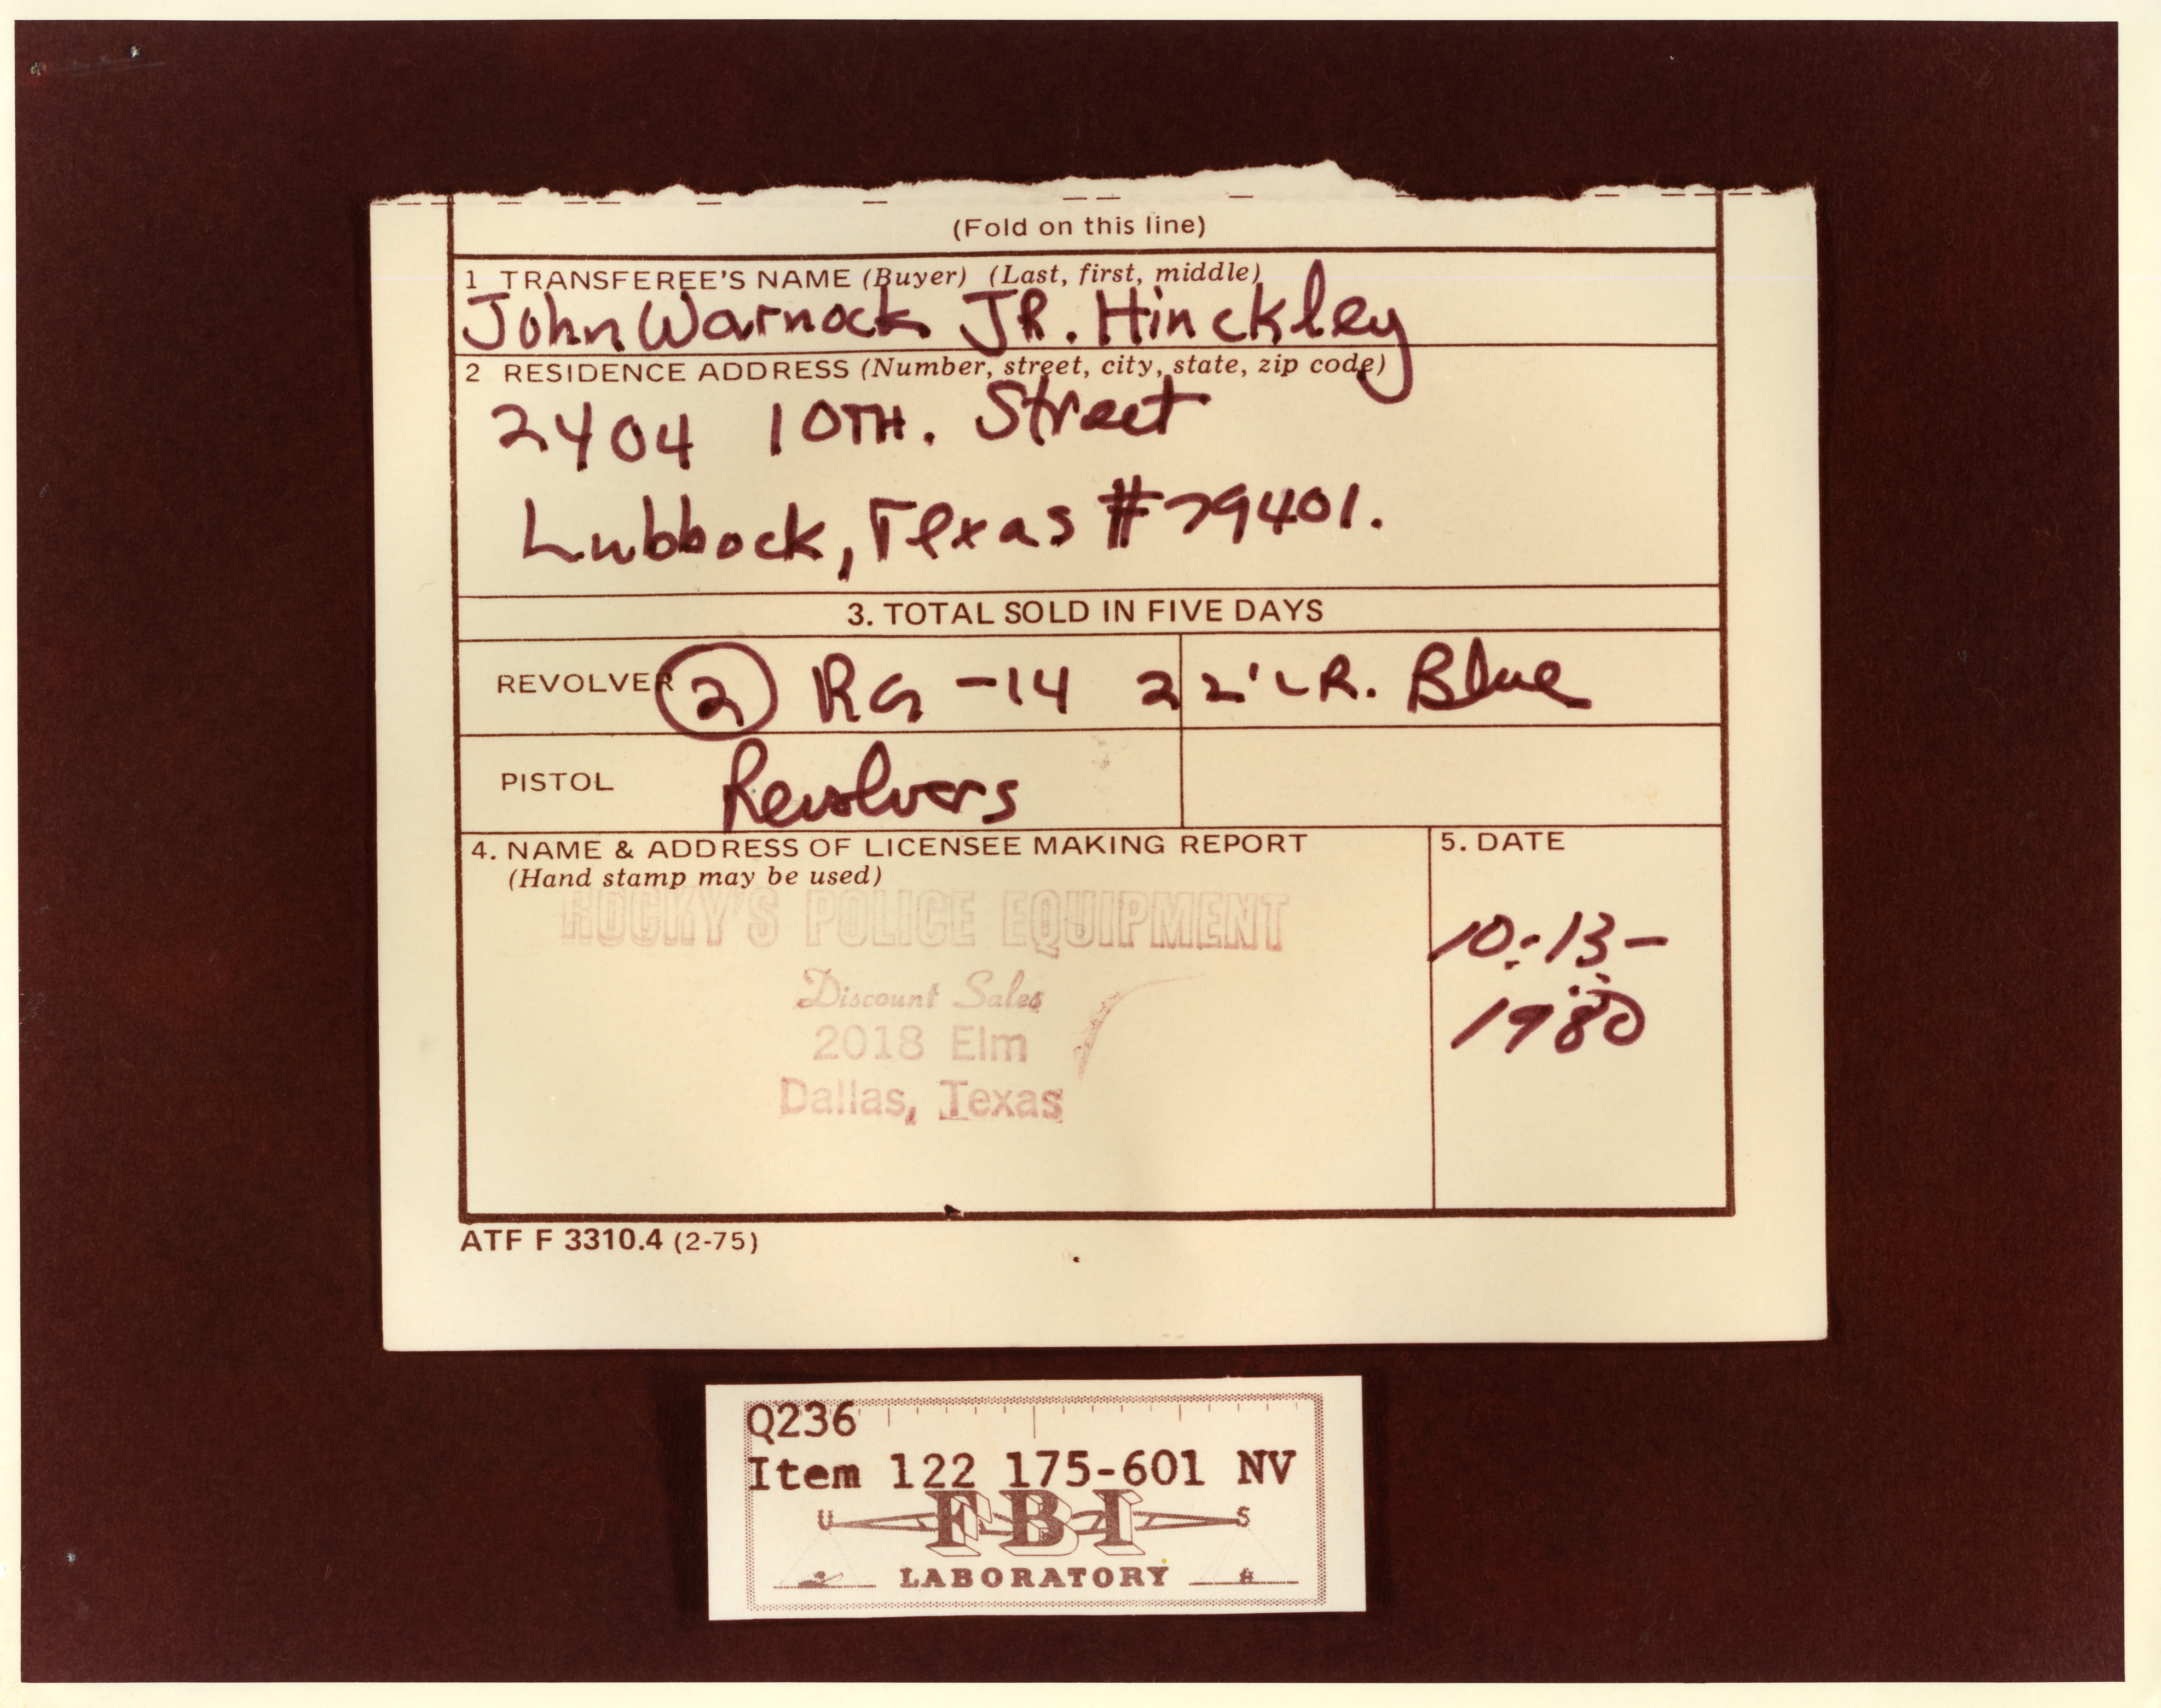 (Fold on this line)
1 TRANSFEREE'S NAME (Buyer) (Last, first, middle)
John Warnock JR. Hinckley
2 RESIDENCE ADDRESS (Number, street, city, state, zip code)
2404 10TH. Street
Lubbock, Texas #79401.
3. TOTAL SOLD IN FIVE DAYS
REVOLVER (2) RG -14 22' LR. Blue
PISTOL Revolvers
4. NAME & ADDRESS OF LICENSEE MAKING REPORT
(Hand stamp may be used)
5. DATE
ROCKY'S POLICE EQUIPMENT
Discount Sales
2018 Elm
Dallas, Texas
10-13-
1980
ATF F 3310.4 (2-75)
Q236
Item 122 175-601 NV
U FBI S
LABORATORY